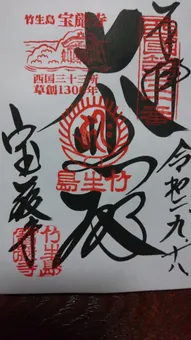 奉拝
竹生島 宝厳寺
西国三十三所
草創1300年
大悲殿
竹生島
令和二九十八
宝厳寺
竹生島
宝厳寺